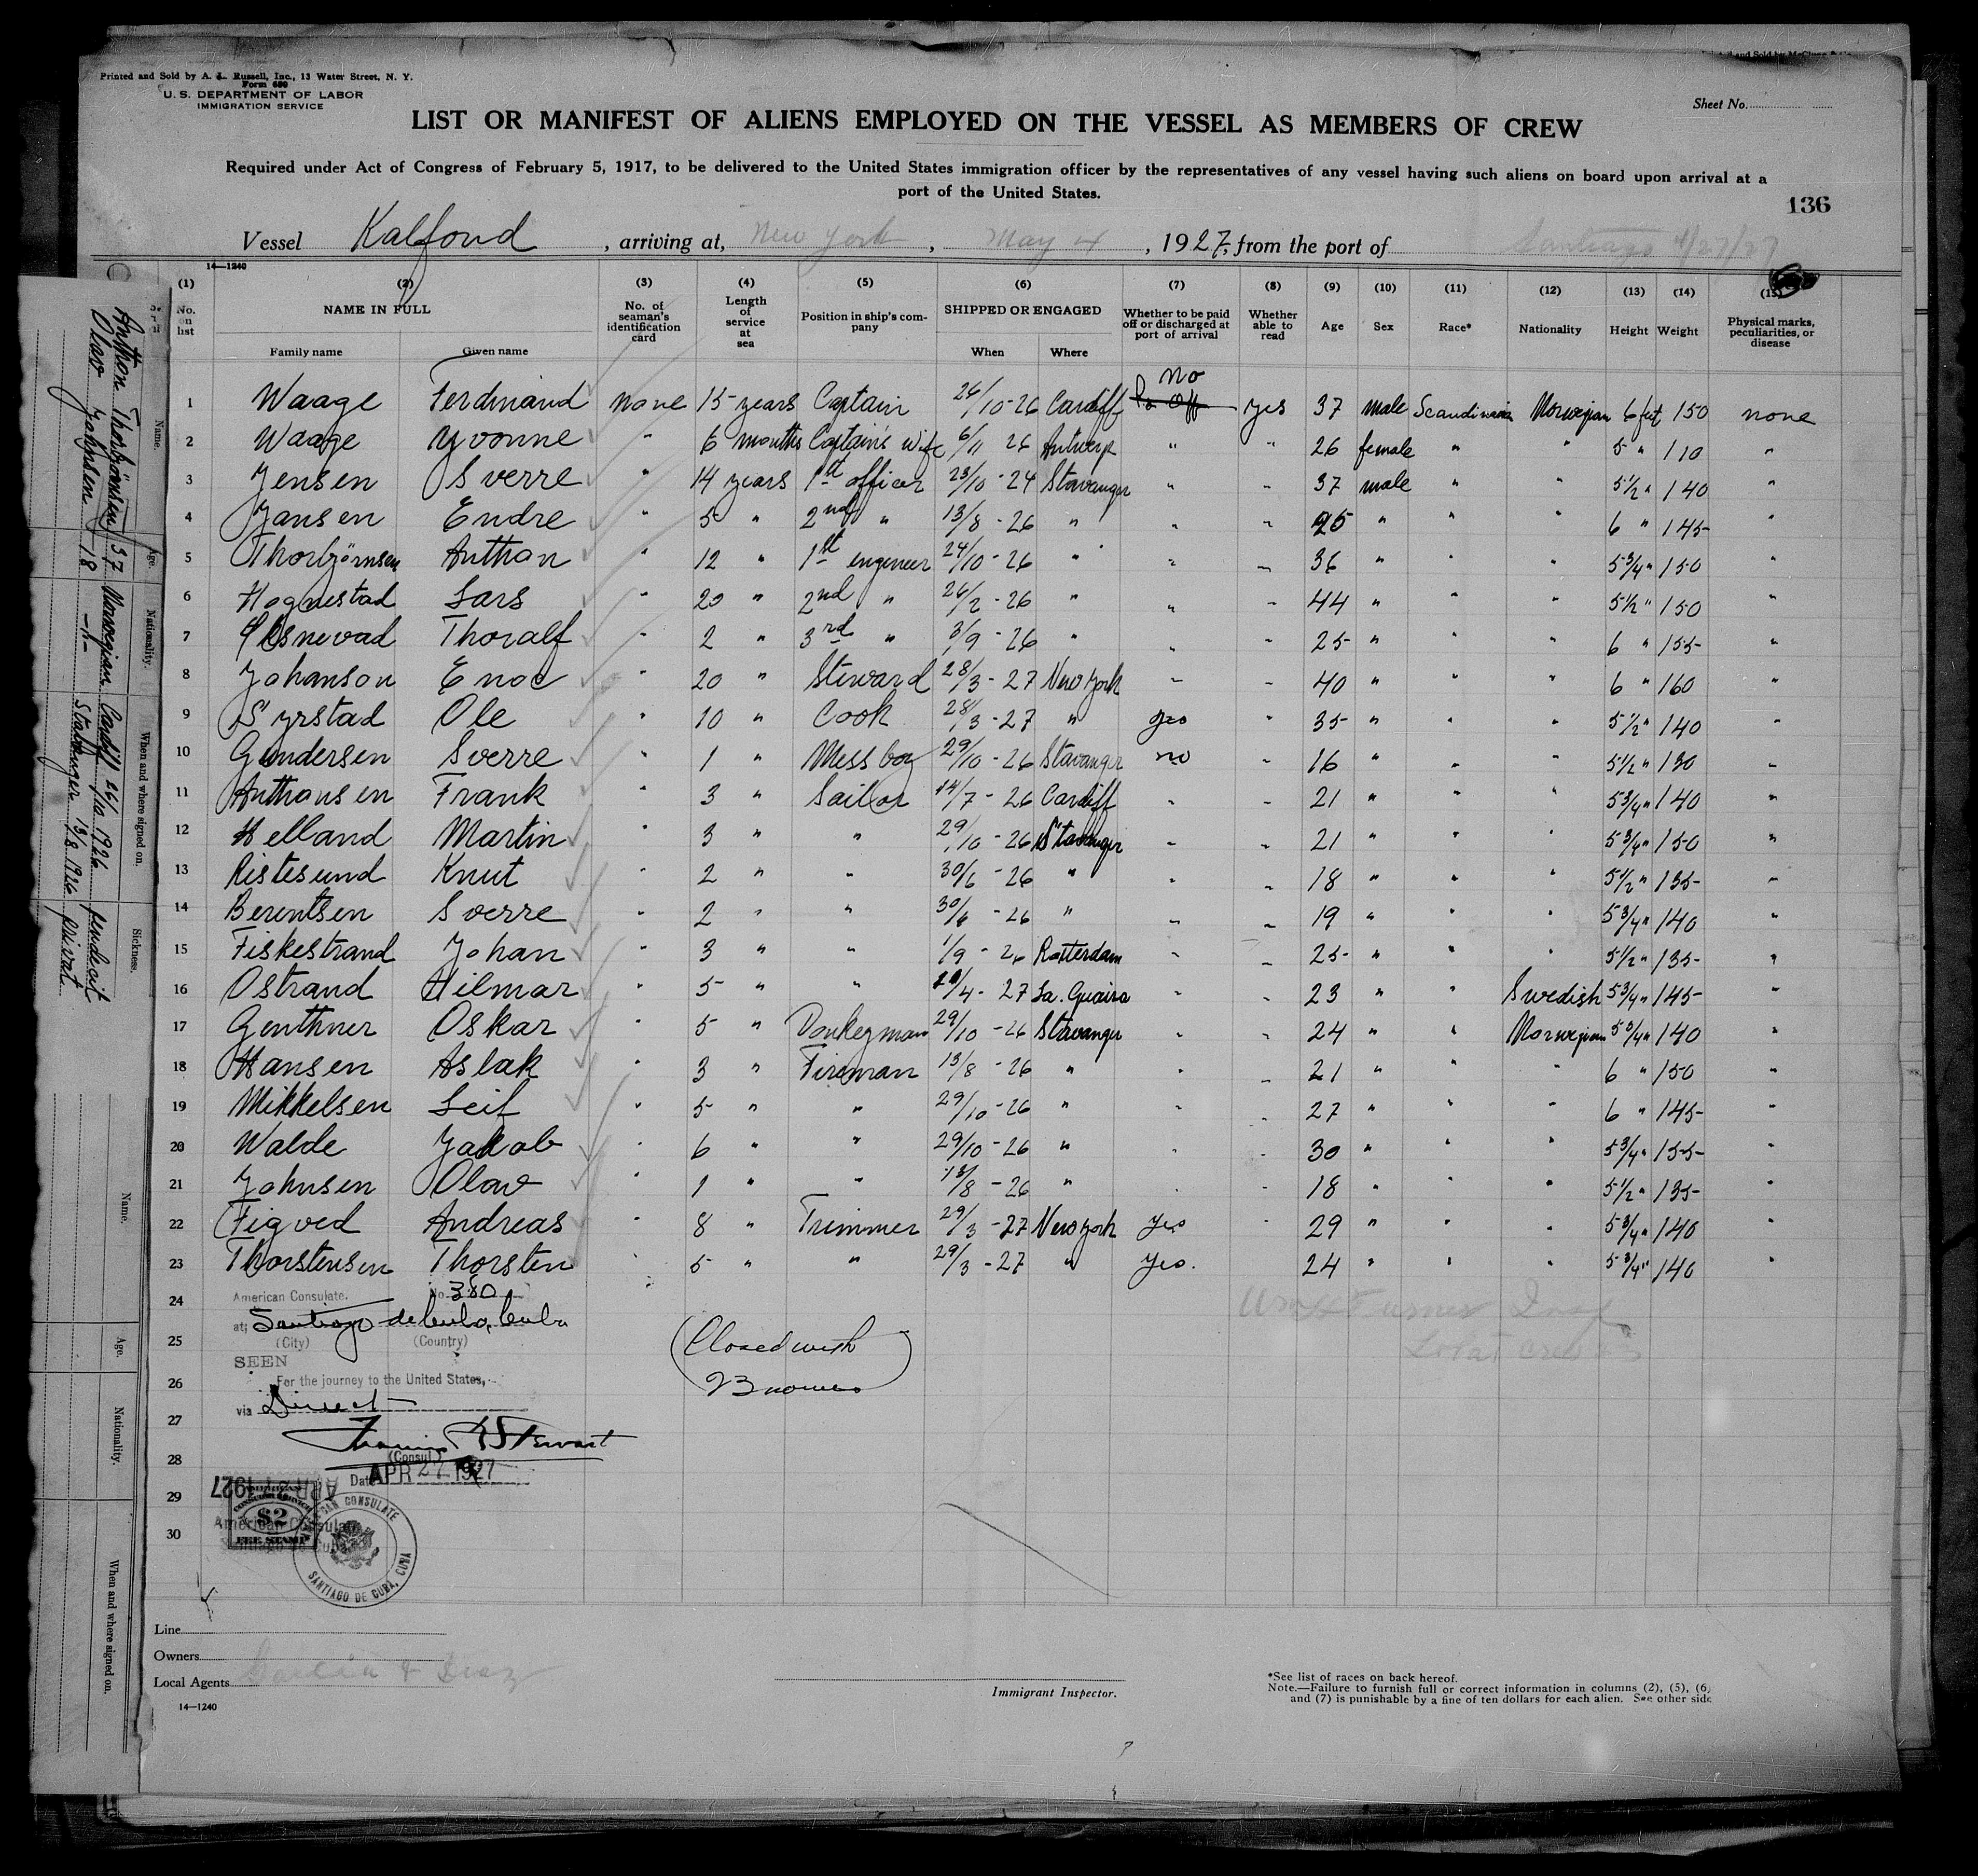 Printed and Sold by A. L. Russell, Inc., 13 Water Street, N. Y.
Form 680
U. S. DEPARTMENT OF LABOR
IMMIGRATION SERVICE
Sheet No.
LIST OR MANIFEST OF ALIENS EMPLOYED ON THE VESSEL AS MEMBERS OF CREW
Required under Act of Congress of February 5, 1917, to be delivered to the United States immigration officer by the representatives of any vessel having such aliens on board upon arrival at a
port of the United States.
136
Vessel Kalfond, arriving at, New York, May 4, 1927, from the port of Santiago 4/27/27
14—1240
(1) (2) (3) (4) (5) (6) (7) (8) (9) (10) (11) (12) (13) (14) (15)
No. on list NAME IN FULL Family name Given name No. of seaman's identification card Length of service at sea Position in ship's company SHIPPED OR ENGAGED When Where Whether to be paid off or discharged at port of arrival Whether able to read Age Sex Race* Nationality Height Weight Physical marks, peculiarities, or disease
no
1 Waage Ferdinand none 15 years Captain 26/10-26 Cardiff yes 37 male Scandinavia Norwegian 6 feet 150 none
2 Waage Yvonne " 6 months Captain's wife 6/11 26 Antwerp " " 26 female " " 5 " 110 "
3 Jensen Sverre " 14 years 1st officer 23/10-24 Stavanger " " 37 male " " 5 1/2 " 140 "
4 Jansen Endre " 5 " 2nd " 13/8-26 " " " 25 " " " 6 " 145 "
5 Thorbjörnsen Anthon " 12 " 1st engineer 24/10-26 " " " 36 " " " 5 3/4 " 150 "
6 Hognestad Lars " 20 " 2nd " 26/2-26 " " " 44 " " " 5 1/2 " 150 "
7 Thoralf " 2 " 3rd " 3/9-26 " " " 25 " " " 6 " 155 "
8 Johanson Enoc " 20 " Steward 28/3-27 New York " " 40 " " " 6 " 160 "
9 Syrstad Ole " 10 " Cook 28/3-27 " yes " 35 " " " 5 1/2 " 140 "
10 Gundersen Sverre " 1 " Mess boy 29/10-26 Stavanger no " 16 " " " 5 1/2 " 130 "
11 Anthonsen Frank " 3 " Sailor 14/7-26 Cardiff " " 21 " " " 5 3/4 " 140 "
12 Helland Martin " 3 " " 29/10-26 Stavanger " " 21 " " " 5 3/4 " 150 "
13 Ristesund Knut " 2 " " 30/6-26 " " " 18 " " " 5 1/2 " 135 "
14 Berentsen Sverre " 2 " " 30/6-26 " " " 19 " " " 5 3/4 " 140 "
15 Fiskestrand Johan " 3 " " 1/9-26 Rotterdam " " 25 " " " 5 1/2 " 135 "
16 Ostrand Hilmar " 5 " " /4-27 La. Guaira " " 23 " " Swedish 5 3/4 " 145 "
17 Genthner Oskar " 5 " Donkeyman 29/10-26 Stavanger " " 24 " " Norwegian 5 3/4 " 140 "
18 Hansen Aslak " 3 " Fireman 13/8-26 " " " 21 " " " 6 " 150 "
19 Mikkelsen Leif " 5 " " 29/10-26 " " " 27 " " " 6 " 145 "
20 Walde Jakob " 6 " " 29/10-26 " " " 30 " " " 5 3/4 " 155 "
21 Johnsen Olav " 1 " " 13/8-26 " " " 18 " " " 5 1/2 " 135 "
22 Figved Andreas " 8 " Trimmer 29/3-27 New York yes " 29 " " " 5 3/4 " 140 "
23 Thorstensen Thorsten " 5 " " 29/3-27 " yes. 24 " " " 5 3/4 " 140 "
24 American Consulate. No. 380
at Santiago de Cuba, Cuba
25 (City) (Country)
(Closed with
SEEN
26 For the journey to the United States,
23 names)
via Direct
27
Francis R Stewart
28 (Consul)
Date APR 27 1927
29
30
APR 27 1927
AMERICAN CONSULAR SERVICE
$2
FEE STAMP
American Consulate
Santiago de Cuba
AMERICAN CONSULATE
SANTIAGO DE CUBA, CUBA
Line
Owners
Local Agents
14—1240
Immigrant Inspector.
*See list of races on back hereof.
Note.—Failure to furnish full or correct information in columns (2), (5), (6)
and (7) is punishable by a fine of ten dollars for each alien. See other side
Name. Age. Nationality. When and where signed on. Sickness.
Anthon Thorbjörnsen 37 Norwegian Cardiff 24/10 1926
Olav Johnsen 18 Stavanger 13/8 1926 privat
Name. Age. Nationality. When and where signed on.